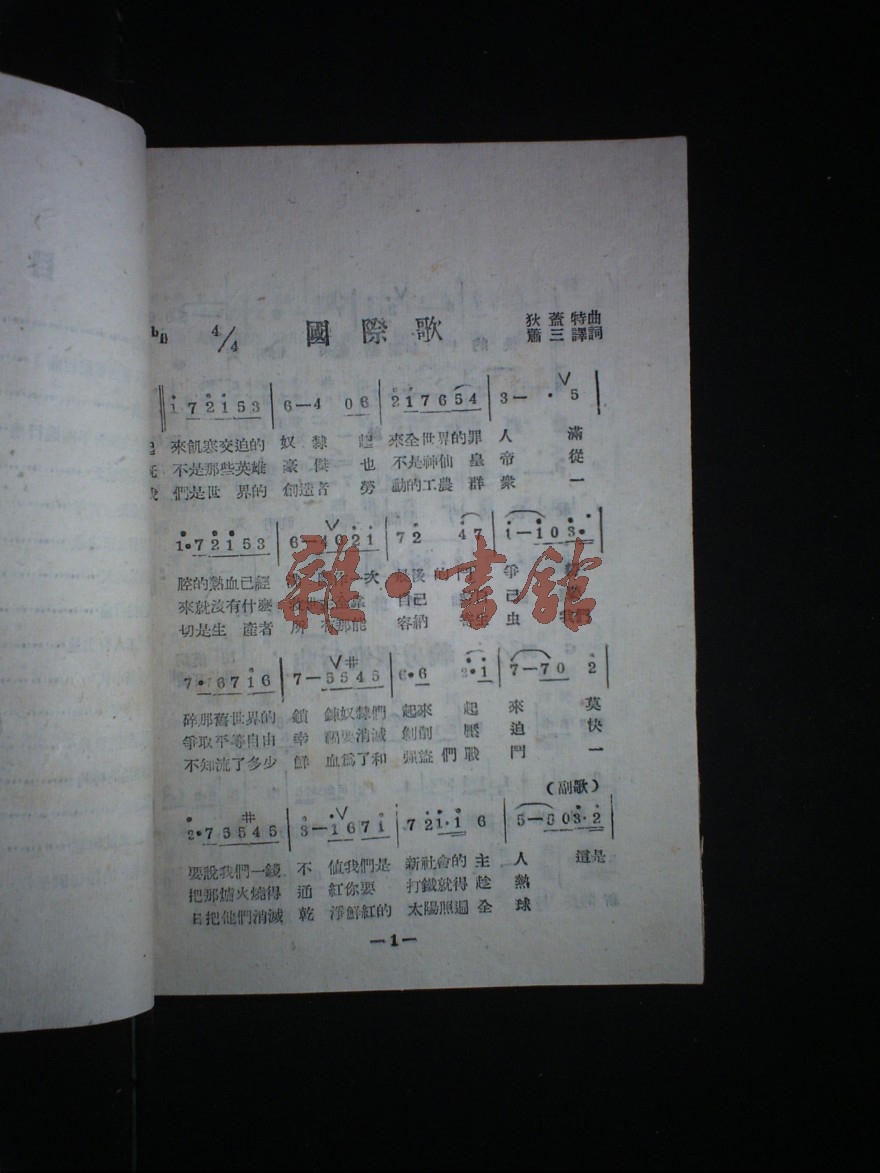 4/4 國際歌 狄蓋特曲
蕭三譯詞
1 7 2 1 5 3 | 6 — 4 0 6 | 2 1 7 6 5 4 | 3 — · 5 |
來飢寒交迫的 奴隸 起 來全世界的罪 人 滿
不是那些英雄 豪傑 也 不是神仙 皇 帝 從
們是世 界的 創造者 勞 動的工農 群 衆 一
1 · 7 2 1 5 3 | 6 — 4 0 2 1 | 7 2 4 7 | 1 — 1 0 3 · |
腔的熱血已經 一次 最後 的 爭
來就沒有什麽 自己 己
切是生 產者 所 那能 容納 虫
7 · 6 7 1 6 | 7 — 5 5 4 5 | 6 · 6 2 · 1 | 7 — 7 0 2 |
碎那舊世界的 鎖 鍊奴隸們 起來 起 來 莫
爭取平等自由 幸 要消滅 壓 迫 快
不知流了多少 鮮 血爲了和 強盜 們 戰 鬥 一
(副歌)
2 · 7 5 5 4 5 | 3 — 1 6 7 1 | 7 2 1 · 1 6 | 5 — 5 0 3 · 2 |
要說我們一錢 不 值我們是 新社會的 主 人 這是
把那爐火燒得 通 紅你要 打鐵就得 趁 熱
日把他們消滅 乾 淨鮮紅的 太陽照遍 全 球
—1—
雜·書館